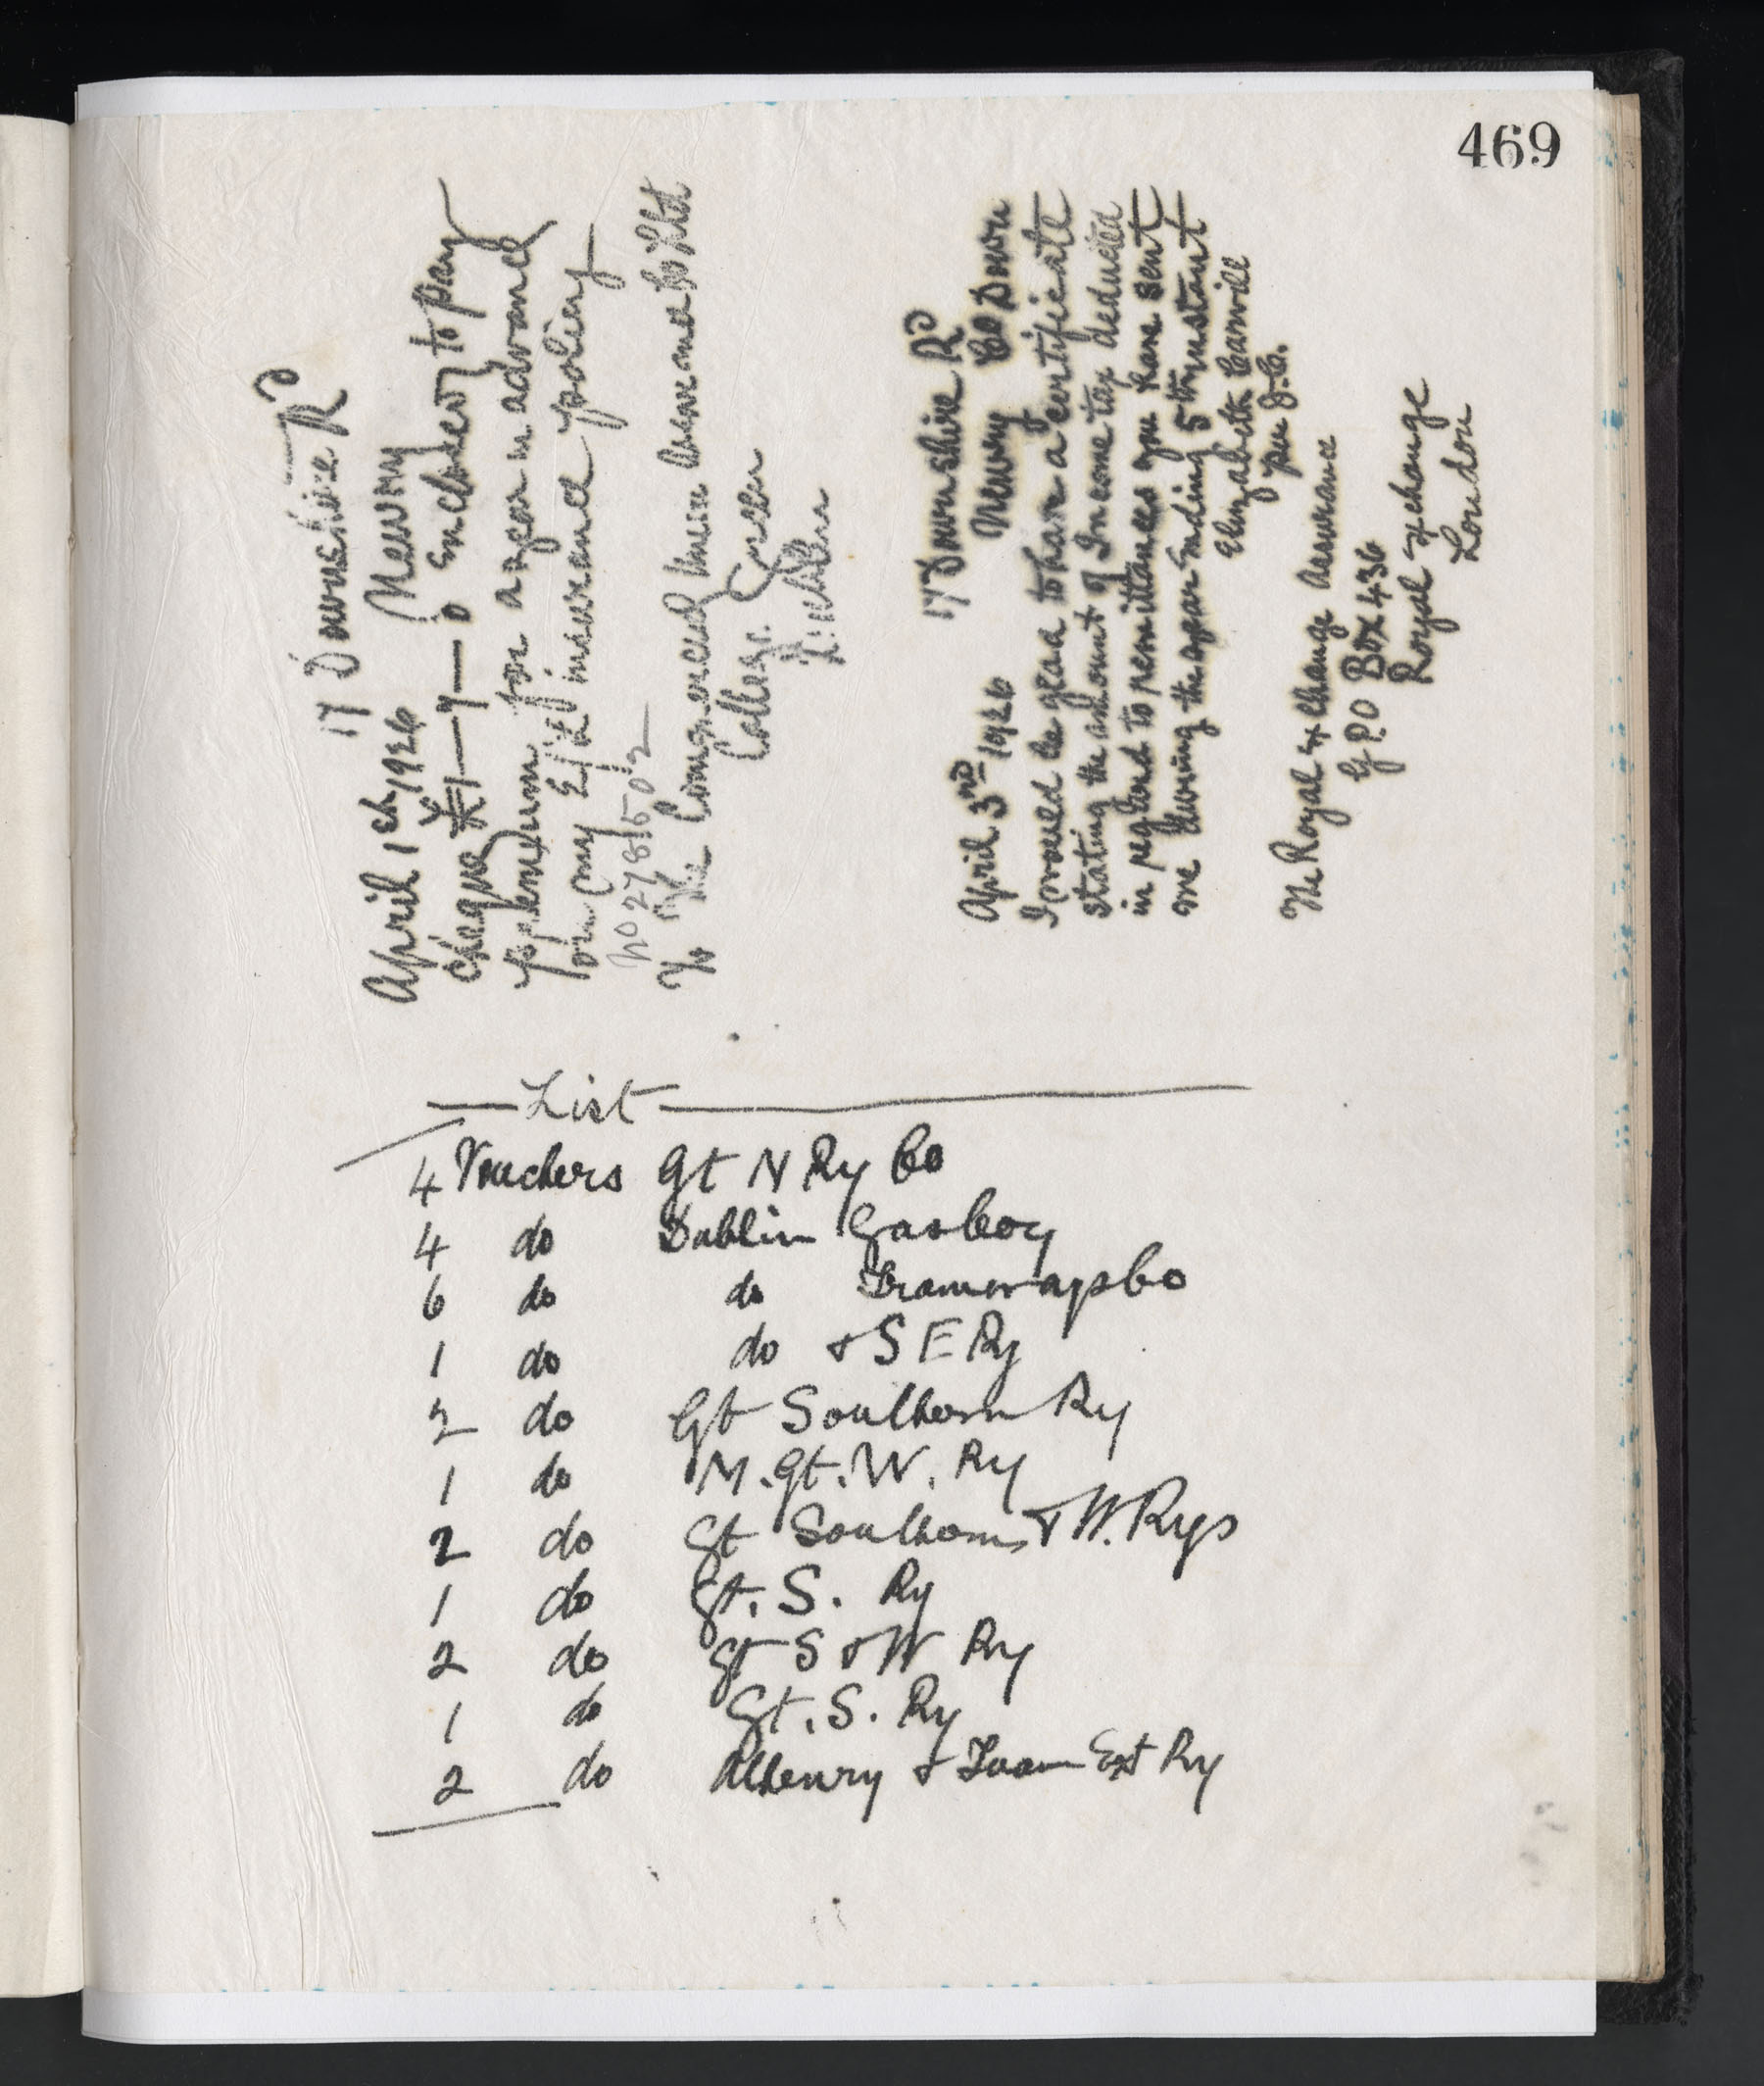 469
17 Downshire Rd
April 1st 1926 Newry
Cheque £1—7—0 enclosed to pay
premium for a year in advance
on my E/L insurance policy
No 2781502
To The Commercial Union Assurance Co Ltd
College Green
Dublin
17 Downshire Rd
April 3rd 1926 Newry Co Down
I would be glad to have a certificate
stating the amount of Income tax deducted
in regard to remittances you have sent
me during the year ending 5th instant
Elizabeth Carvill
per J.C.
The Royal Exchange Assurance
G.P.O Box 436
Royal Exchange
London
List
4 Vouchers Gt N Ry Co
4 do Dublin Gas Coy
6 do do Tramways Co
1 do do & S E Ry
2 do Gt Southern Ry
1 do M. Gt. W. Ry
2 do Gt Southern & W. Rys
1 do Gt. S. Ry
2 do Gt S & W Ry
1 do Gt. S. Ry
2 do Athenry & Tuam Ext Ry